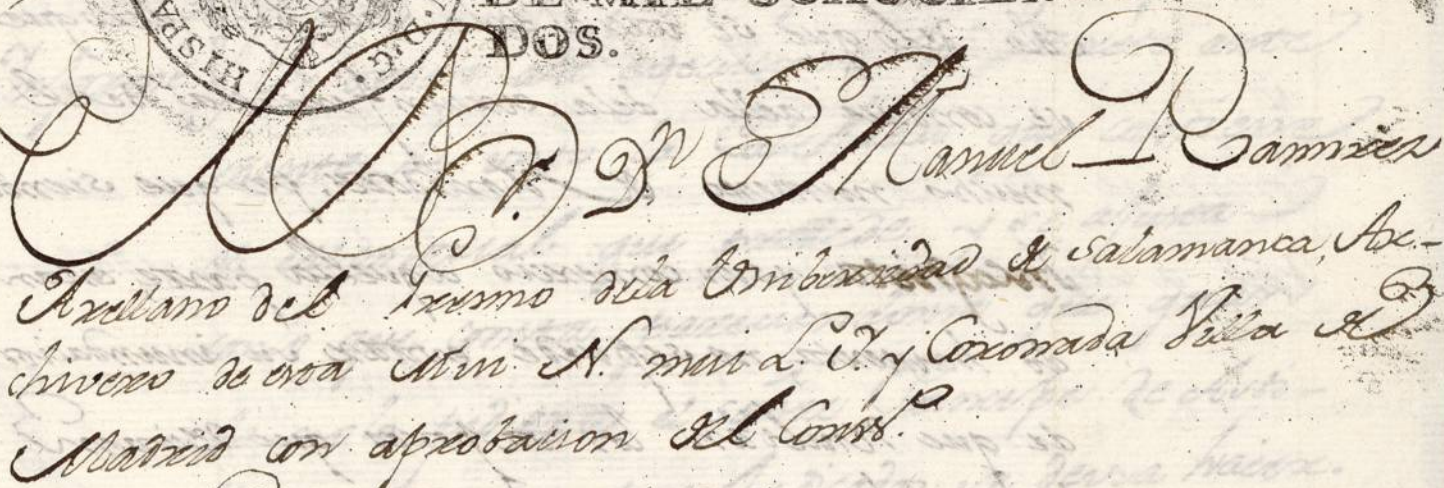 HISPA
D. G.
DE MIL OCHOCIEN
DOS.
Dn Manuel Ramirez
Arellano del Gremio dela Unibersidad de Salamanca, Ar-
chivero de esta Mui N. mui L. Y. y Coronada Villa de
Madrid con aprobacion del Consº.